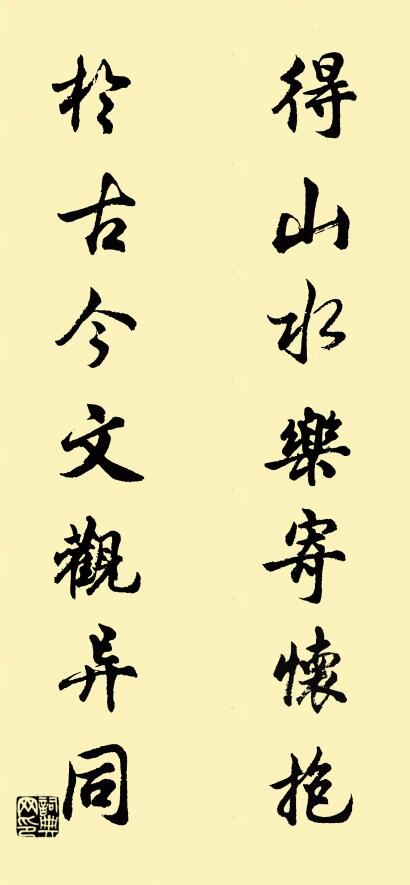 得山水樂寄懷抱
於古今文觀异同
詞典网印